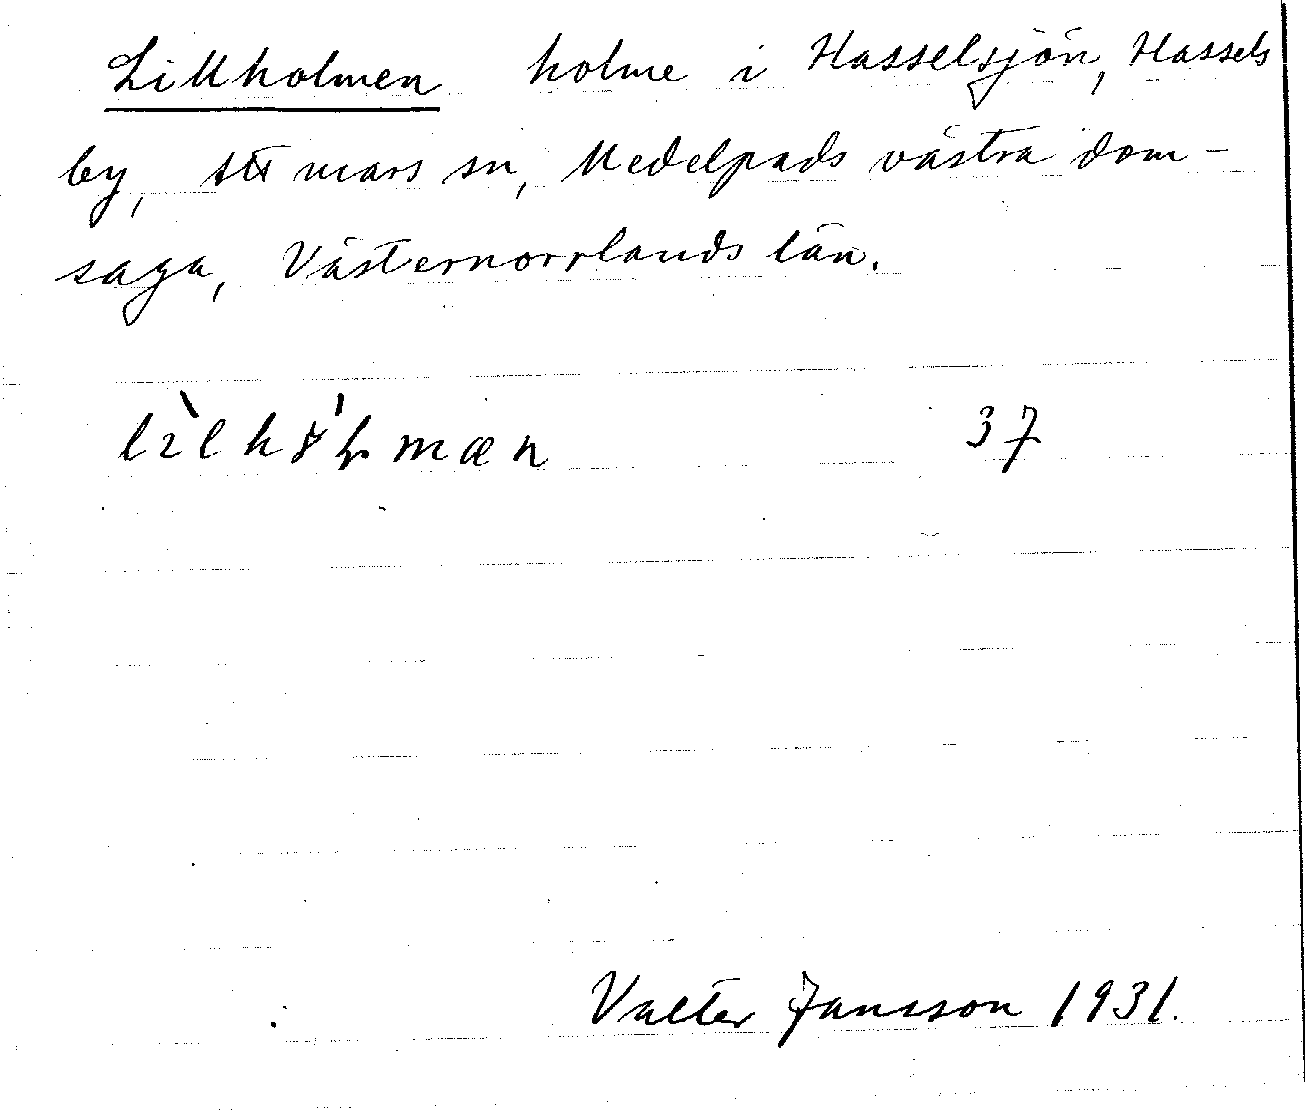 Lillholmen holme i Hasselsjön, Hassels
by, Attmars sn, Medelpads västra dom-
saga, Västernorrlands län.
37
Valter Jansson 1931.